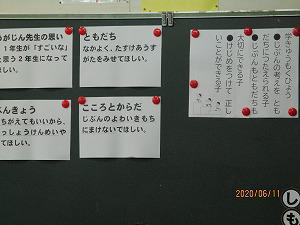 がじん先生の思い
１年生が「すごいな」
と思う２年生になって
ほしい。
ともだち
なかよく、たすけあうす
がたをみせてほしい。
ぶんきょう
ちがえてもいいから、
っしょうけんめいや
てほしい。
こころとからだ
じぶんのよわいきもち
にまけないでほしい。
学きゅうもくひょう
●じぶんの考えを とも
だちにつたえられる子
●じぶんもともだちも
大切にできる子
●けじめをつけて 正し
いことができる子
2020/06/11
しも